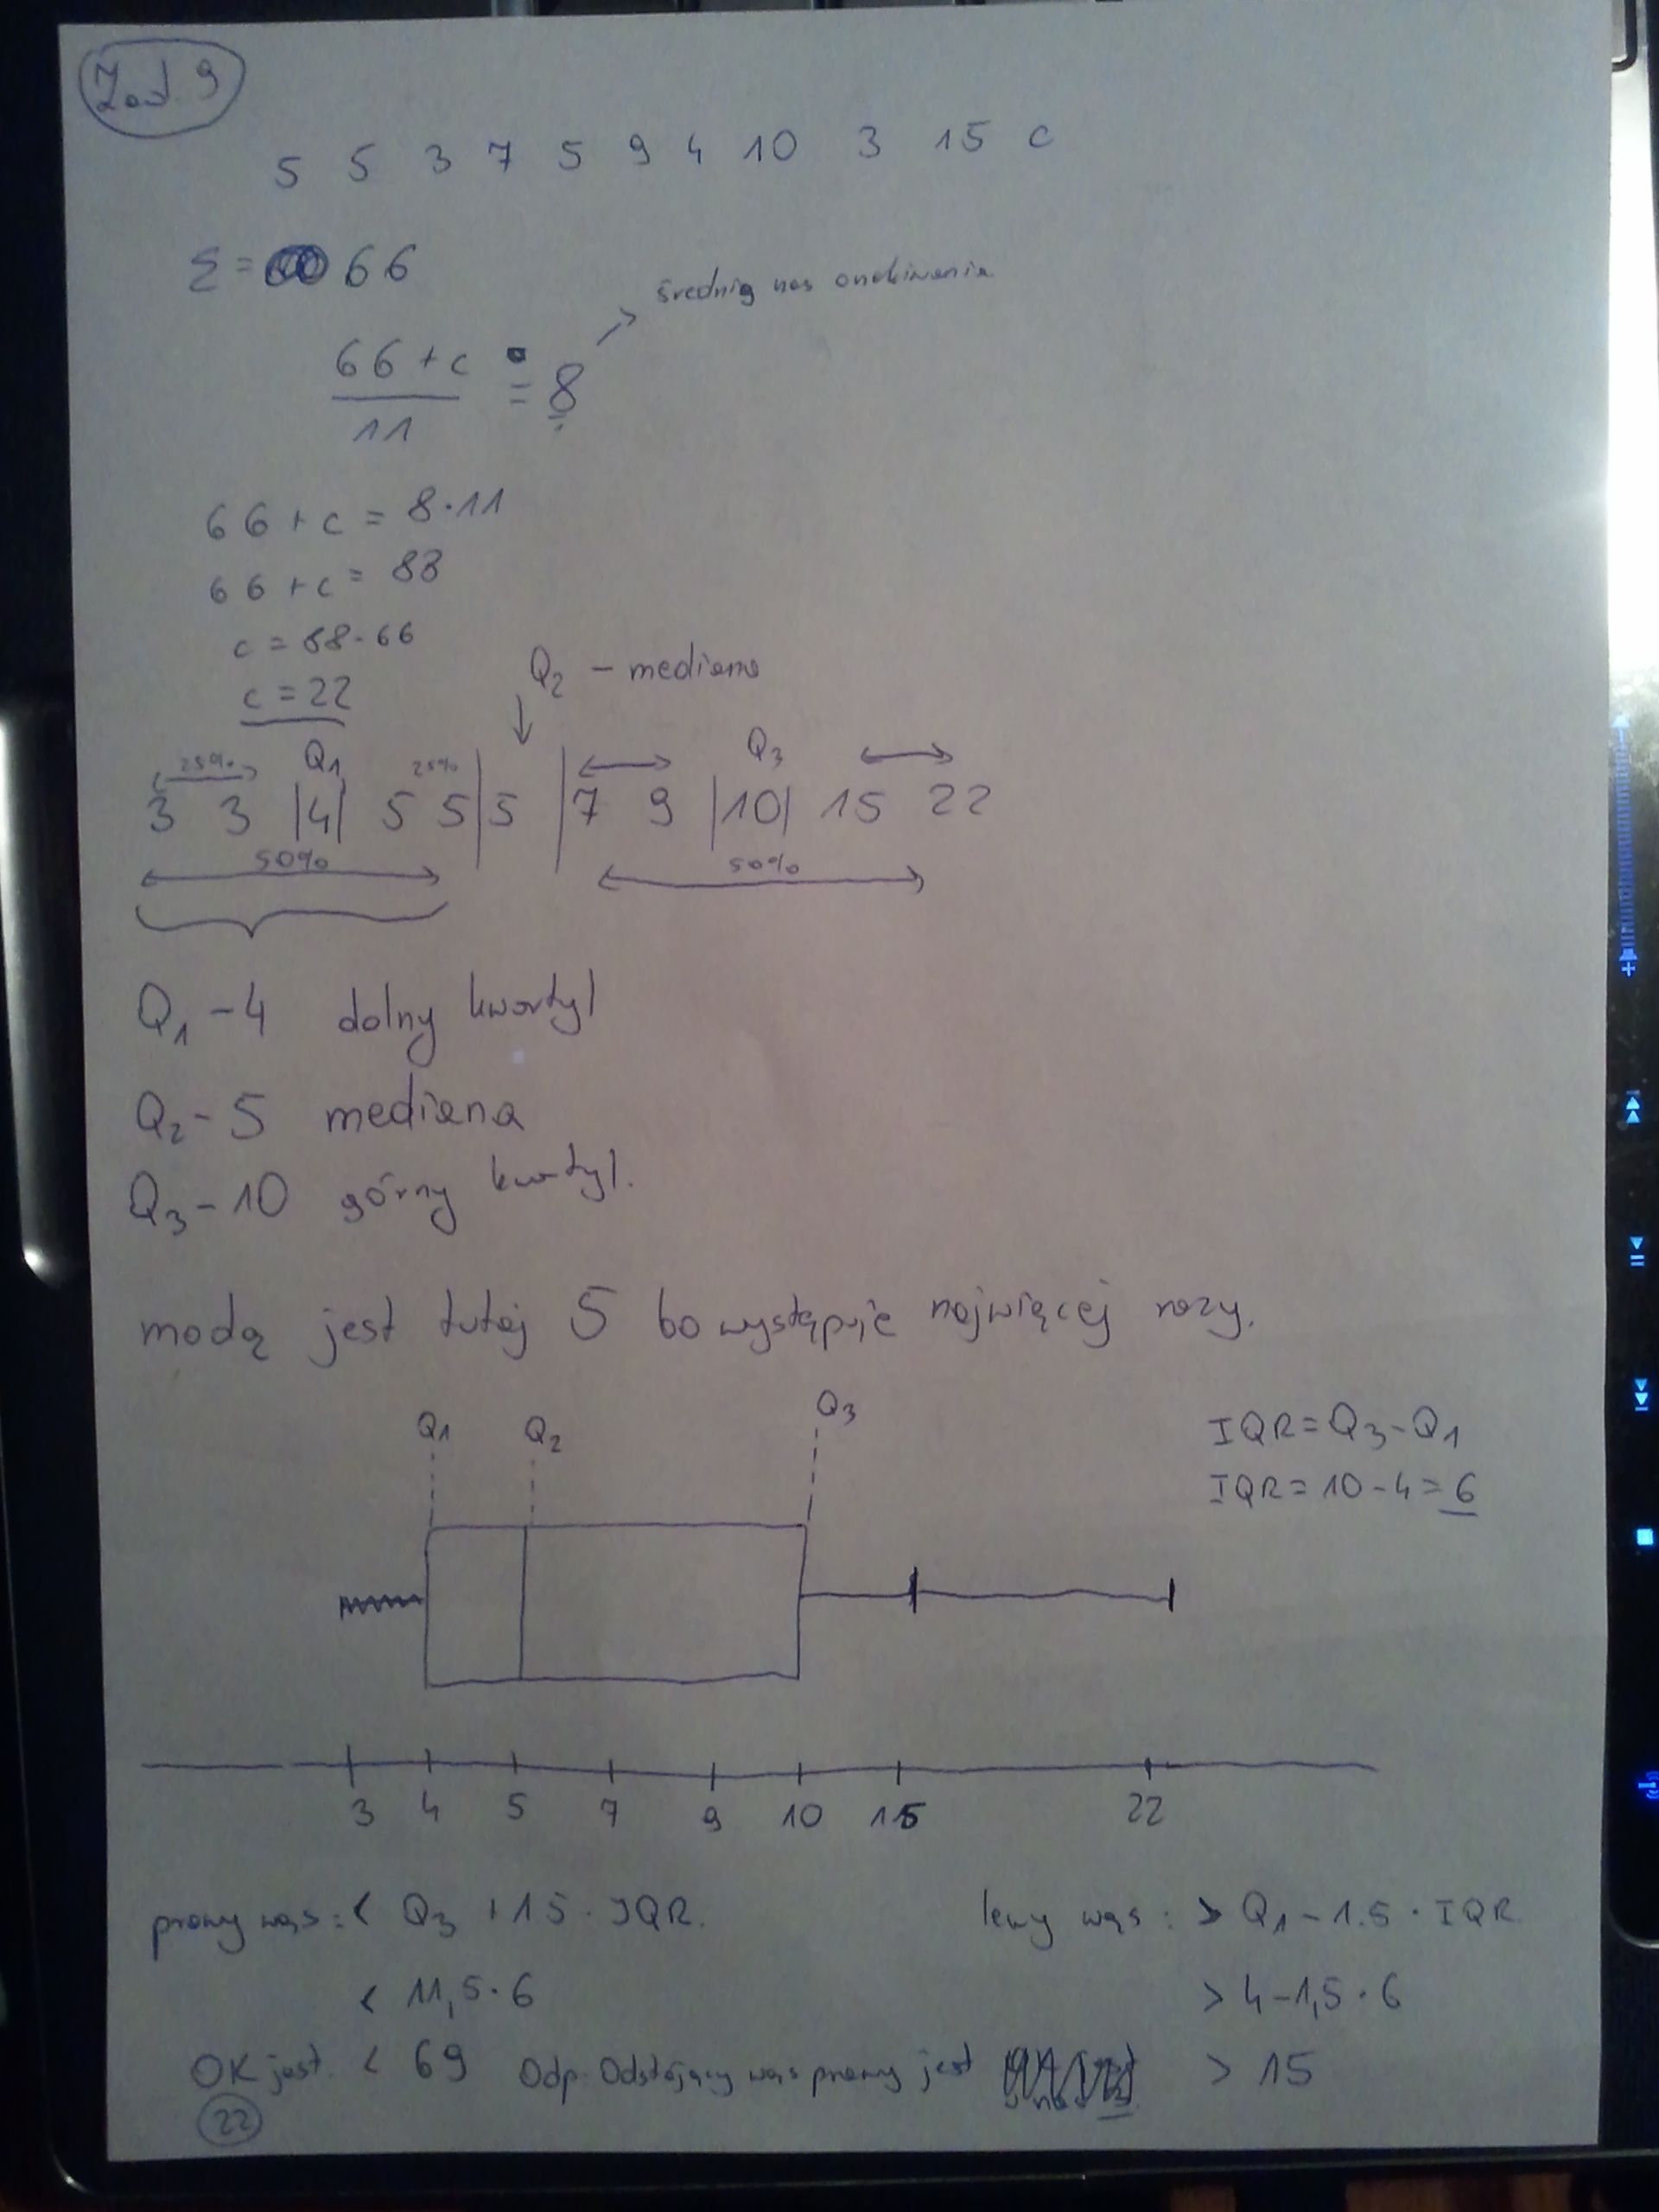 Zad. 9
5 5 3 7 5 9 4 10 3 15 c
Σ = 66
średnia nas
66 + c = 8
11
66 + c = 8·11
66 + c = 88
c = 88-66
c = 22
Q2 - mediana
25% Q1 25% Q3
3 3 |4| 5 5 | 5 | 7 9 |10| 15 22
50% 50%
Q1 - 4 dolny kwartyl
Q2 - 5 mediana
Q3 - 10 górny kwartyl.
modą jest tutaj 5 bo występuje najwięcej razy.
Q1 Q2 Q3
IQR = Q3 - Q1
IQR = 10 - 4 = 6
3 4 5 7 9 10 15 22
prawy wąs: < Q3 + 1 5 · IQR.
lewy wąs: > Q1 - 1.5 · IQR
< 11,5 · 6
> 4 - 1,5 · 6
OK jest < 69 Odp. Odstający wąs prawy jest
> 15
22